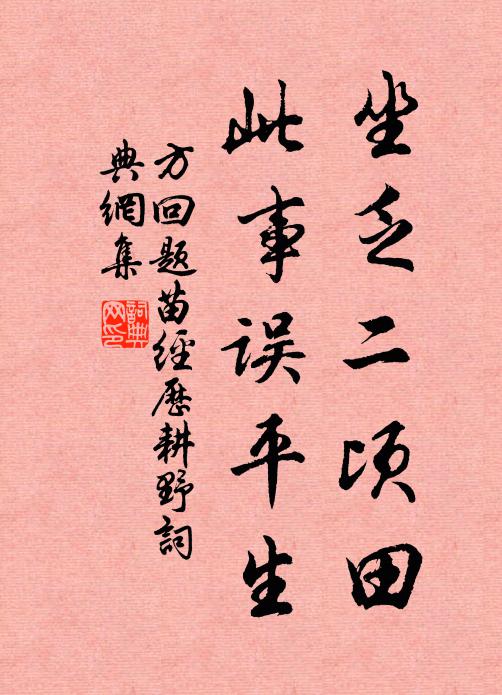 坐乏二顷田
此事误平生
方回题苗經歷耕野詞
典網集
詞典
网印